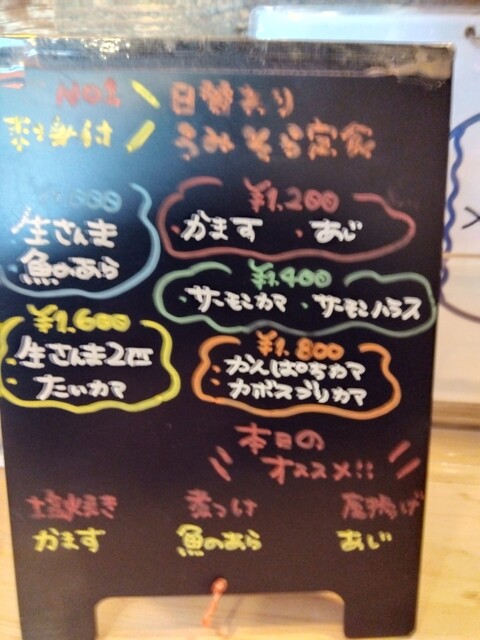 No1 日替わり
うみそら定食
生さんま
・魚のあら
¥1,200
・かます ・あじ
¥1,400
・サーモンカマ ・サーモンハラス
¥1,600
・生さんま2匹
・たいカマ
¥1,800
・かんぱちカマ
・カボスブリカマ
本日の
オススメ!!
塩焼き 煮つけ
かます 魚のあら あじ